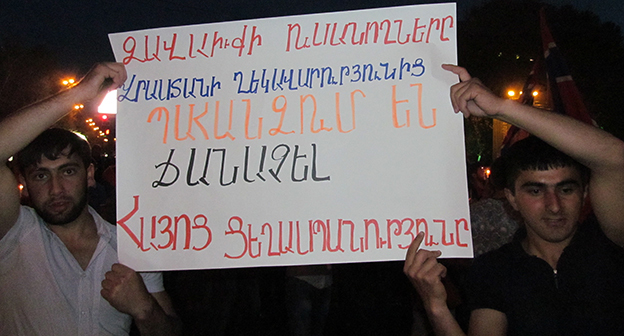 ՋԱՎԱԽՔԻ ՈՒՍԱՆՈՂՆԵՐԸ
ՎՐԱՍՏԱՆԻ ՂԵԿԱՎԱՐՈՒԹՅՈՒՆԻՑ
ՊԱՀԱՆՋՈՒՄ ԵՆ
ՃԱՆԱՉԵԼ
ՀԱՅՈՑ ՑԵՂԱՍՊԱՆՈՒԹՅՈՒՆԸ